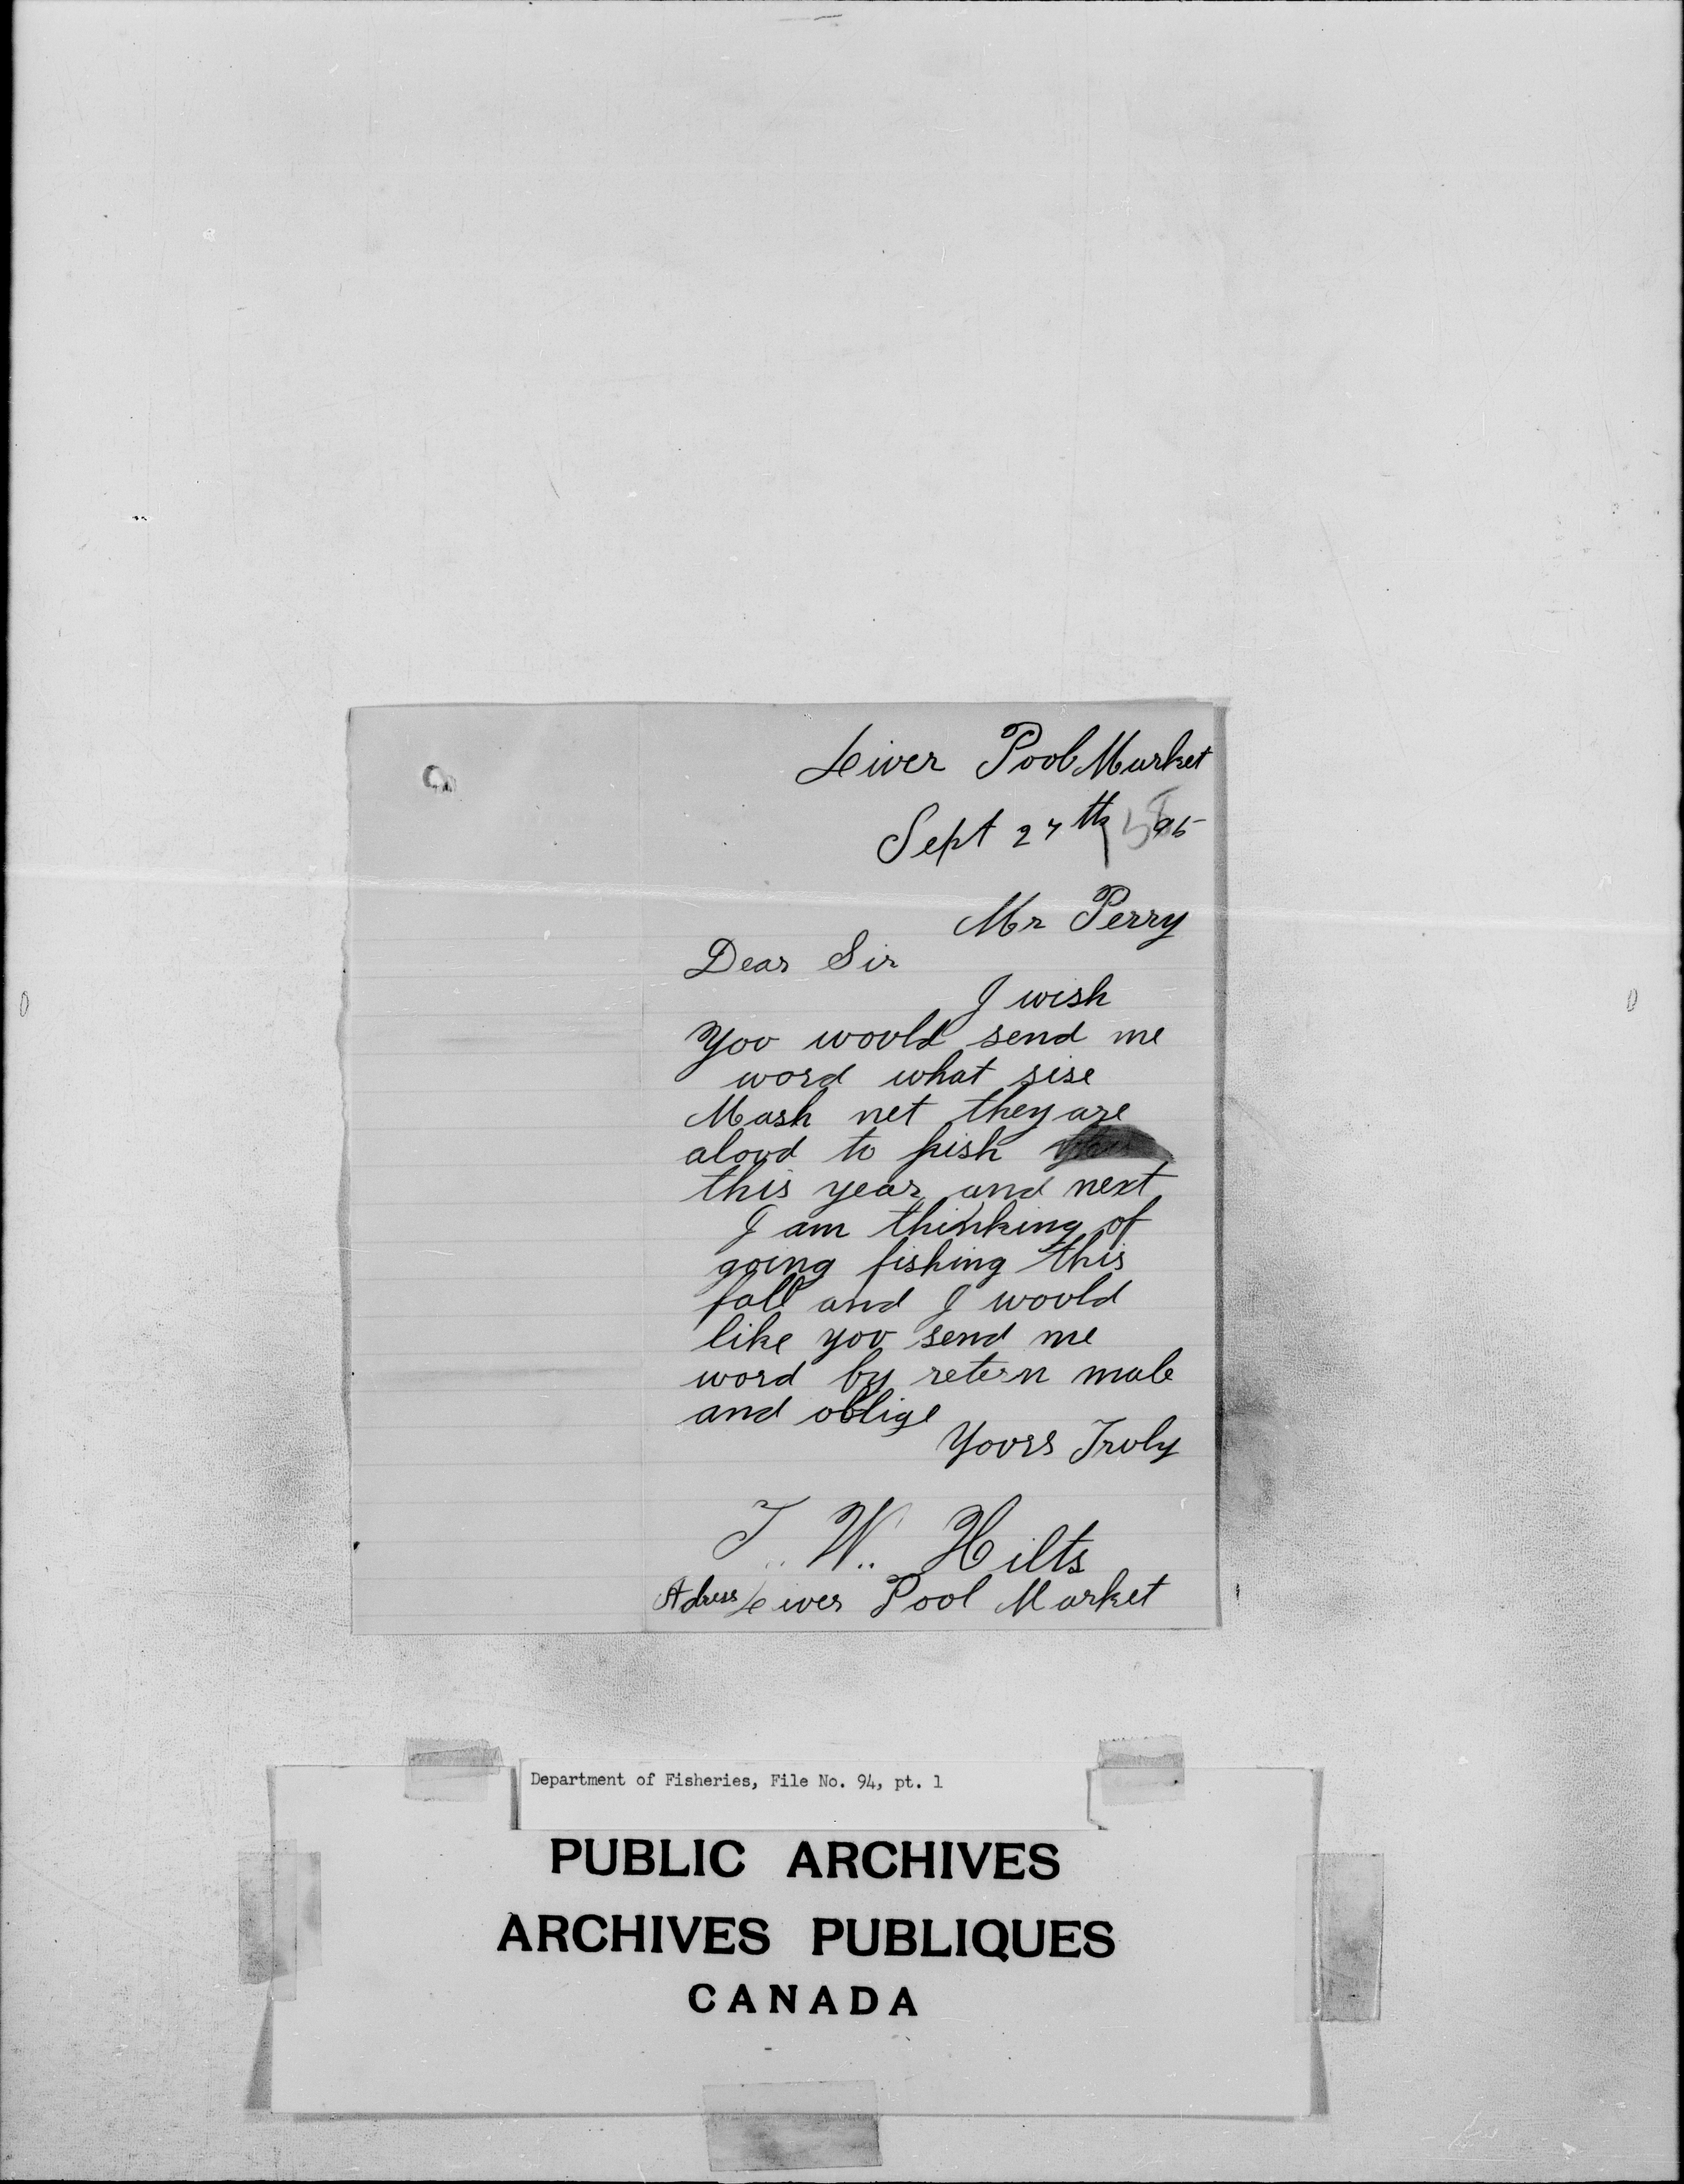 Liver Pool Market
Sept 27th 95
Mr Perry
Dear Sir
I wish
you would send me
word what sise
Mash net they are
aloud to fish
this year and next
I am thinking of
going fishing this
fall and I would
like you send me
word by retern male
and oblige
Yours Truly
T. W. Hilts
Adress Liver Pool Market
Department of Fisheries, File No. 94, pt. 1
PUBLIC ARCHIVES
ARCHIVES PUBLIQUES
CANADA